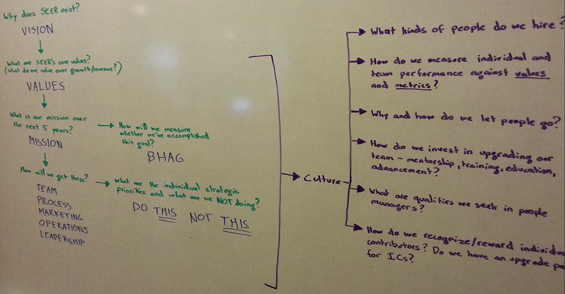 Why does SEER exist?
VISION
What are SEER's core values?
(What do we value over growth/revenue?)
VALUES
What is our mission over
the next 5 years?
MISSION
How will we measure
whether we've accomplished
this goal?
BHAG
How will we get there?
TEAM
PROCESS
MARKETING
OPERATIONS
LEADERSHIP
What are the individual strategic
priorities and what are we NOT doing?
DO THIS NOT THIS
Culture
What kinds of people do we hire?
How do we measure individual and
team performance against values
and metrics?
Why and how do we let people go?
How do we invest in upgrading our
team - mentorship, training, education,
advancement?
What are qualities we seek in people
managers?
How do we recognize/reward individual
contributors? Do we have an upgrade pa
for ICs?